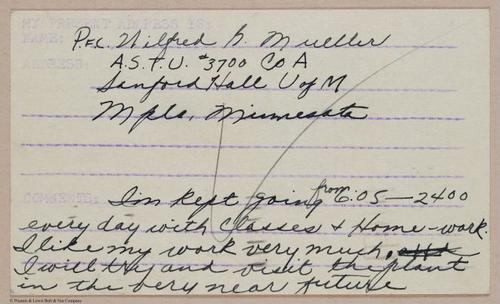 MY PRESENT ADDRESS IS:
NAME: Pfc. Wilfred G. Mueller
ADDRESS: A.S.T.U. #3700 Co A
Sanford Hall U of M
Mpls, Minnesota
COMMENTS: I'm kept going from 6:05—2400
every day with Classes & Home-work.
I like my work very much.
I will try and visit the plant
in the very near future
© Russum & Lewis Bolt & Nut Company